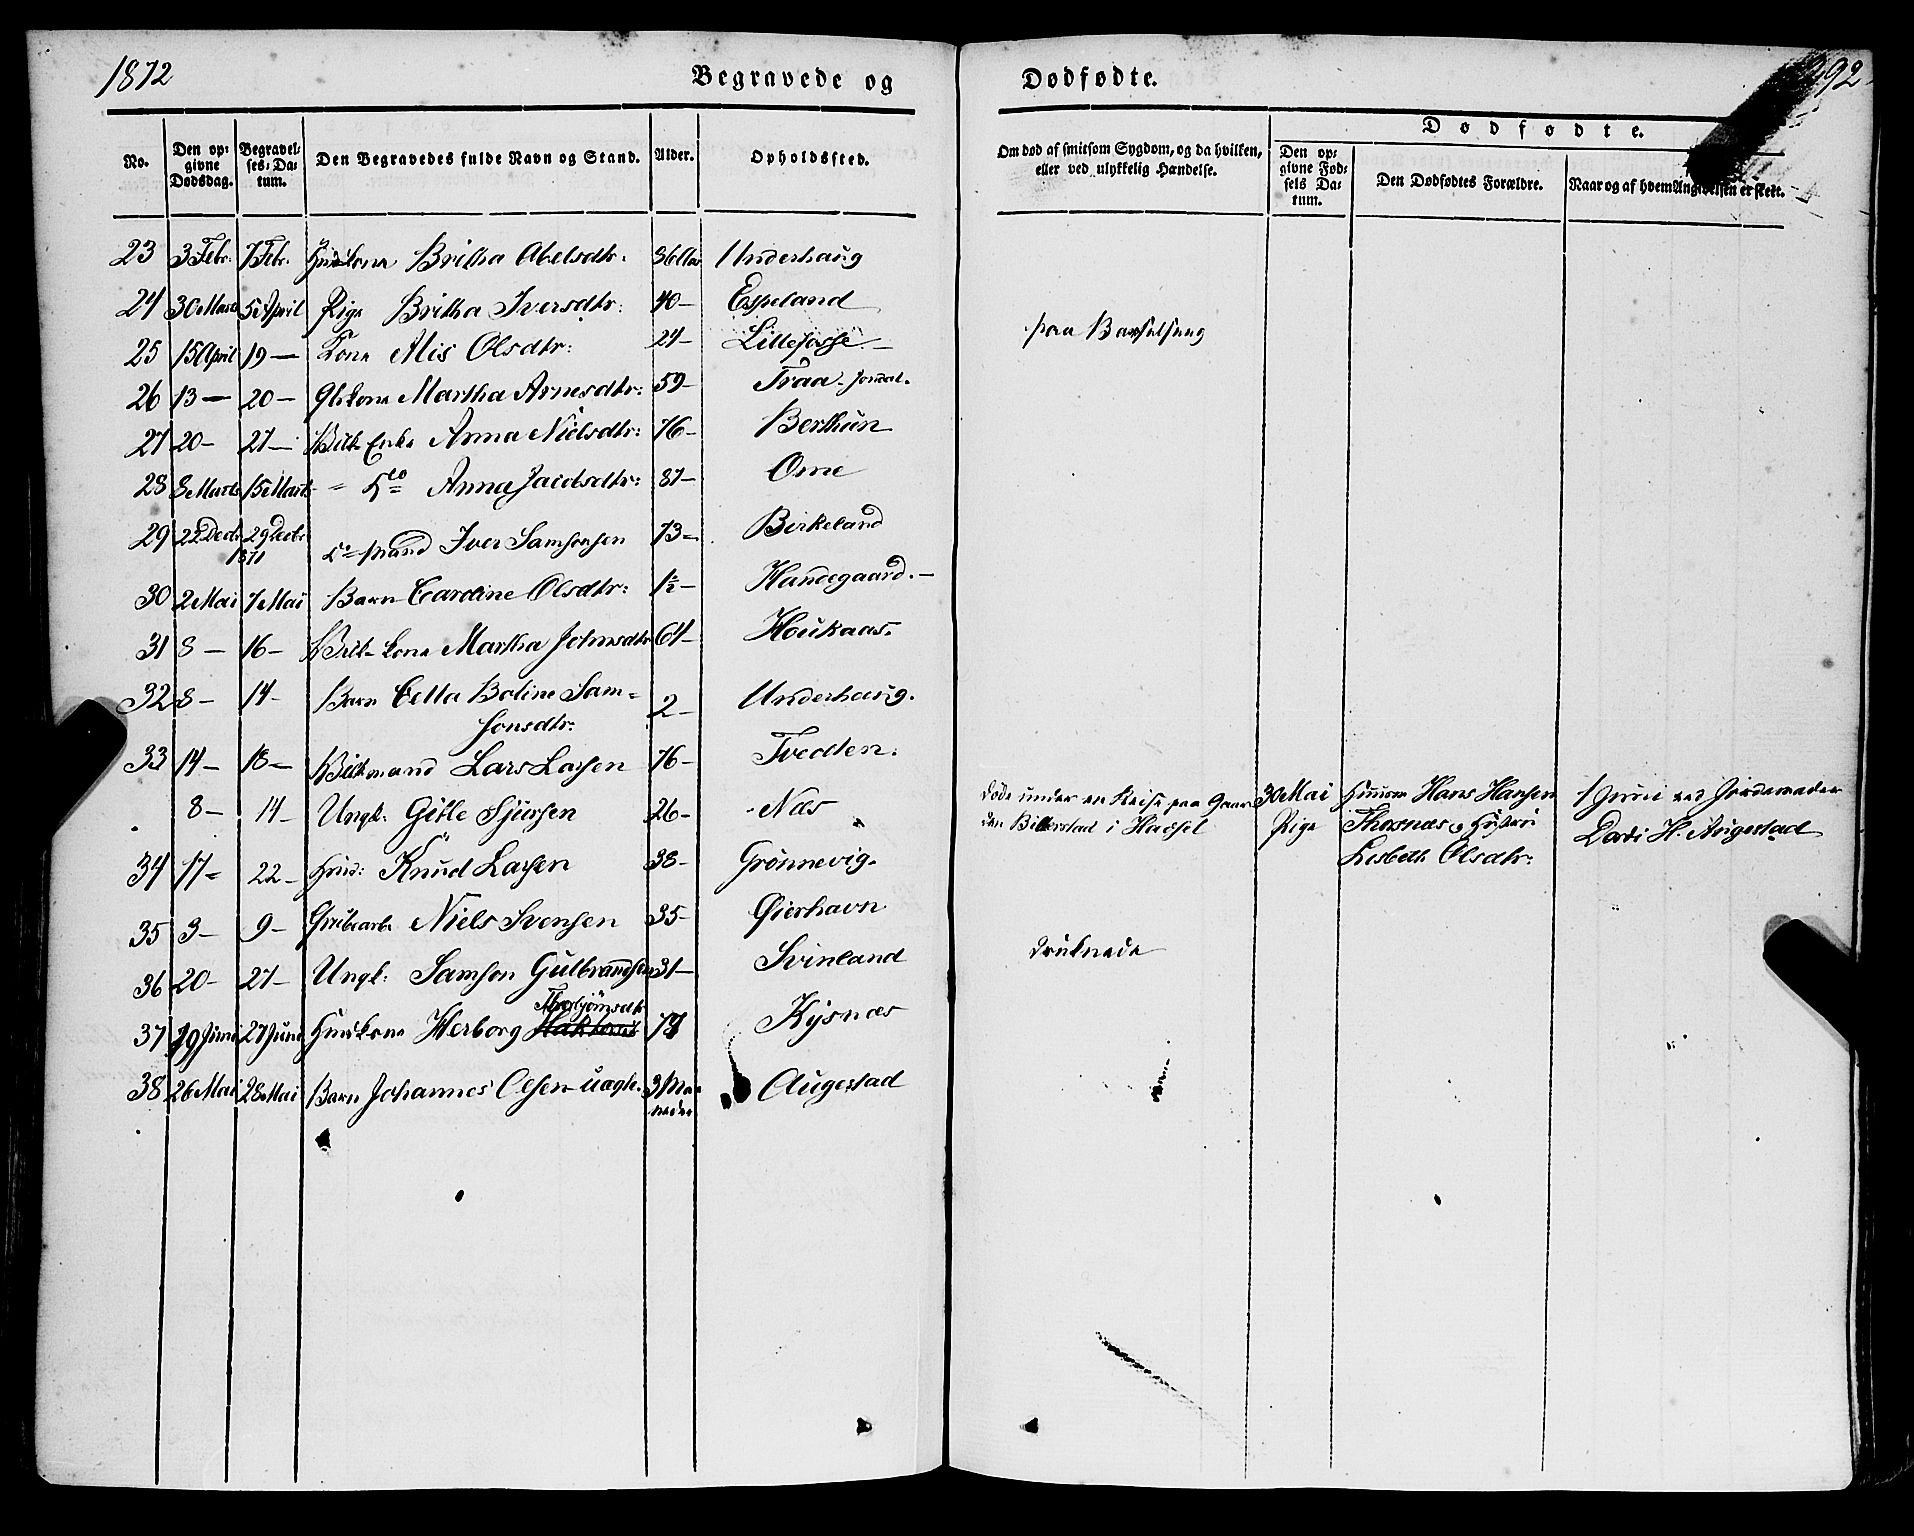 1872
Begravede og
Dødfødte.
292
No.
Den op-
givne
Dødsdag.
Begravel-
ses-Da-
tum.
Den Begravedes fulde Navn og Stand.
Alder.
Opholdssted.
Om død af smitsom Sygdom, og da hvilken,
eller ved ulykkelig Hændelse.
Dødfødte.
Den op-
givne Fød-
sels Da-
tum.
Den Dødfødtes Forældre.
Naar og af hvem Angivelsen er skeet.
23 3 Febr. 7 Febr. Huuskone Britha Abelsdtr: 36 Aar Underhaug
24 30 Marts 5 April Pige Britha Iversdtr: 40 - Espeland
25 15 April 19 — Kone Alis Olsdtr: 24 - Lillefosse - paa Barselseng
26 13 — 20 — Gbkone Martha Arnesdtr: 59 - Traa - Jondal.
27 20 - 27 — Kaar Enke Anna Nielsdtr: 76 - Berthun
28 8 Marts 15 Marts - do Anna Jacobsdtr: 87 - Ome
29 22 Decbr 29 Decbr
1871 do mand Iver Samsonsen 73 - Birkeland
30 2 Mai 7 Mai Barn Caroline Olsdtr: 1½ - Handegaard. -
31 8 — 16 - kone Martha Johnsdtr 64 - Houkaas.
32 8 - 14 - Barn Cella Boline Sam-
sonsdtr: 2 - Underhaug.
33 14 - 18 - Lars Larsen 76 - Tvedten.
8 - 14 - Ungk: Gitle Sjursen 26 - Næs døde under en Reise paa Gaar-
den i
34 17 - 22 - Huus: Knud Larsen 38 - Grønnevig.
30 Mai
Pige
Huusm Hans Hansen
Thosnæs og Hustru
Lisbeth Olsdtr:
1 Juni ved Jordemoder
H. Augestad
35 3 - 9 - Grubearb. Niels Svensen 35 - Øierhavn
36 20 - 27 - Ungk: Samson Gulbrandsen 31 - Svinland druknede
Thorbjørnsdtr
37 19 Juni 27 Juni Huuskone Herborg 77 Kysnæs
38 26 Mai 28 Mai Barn Johannes Olsen uægte. 3 Maa-
neder Augestad